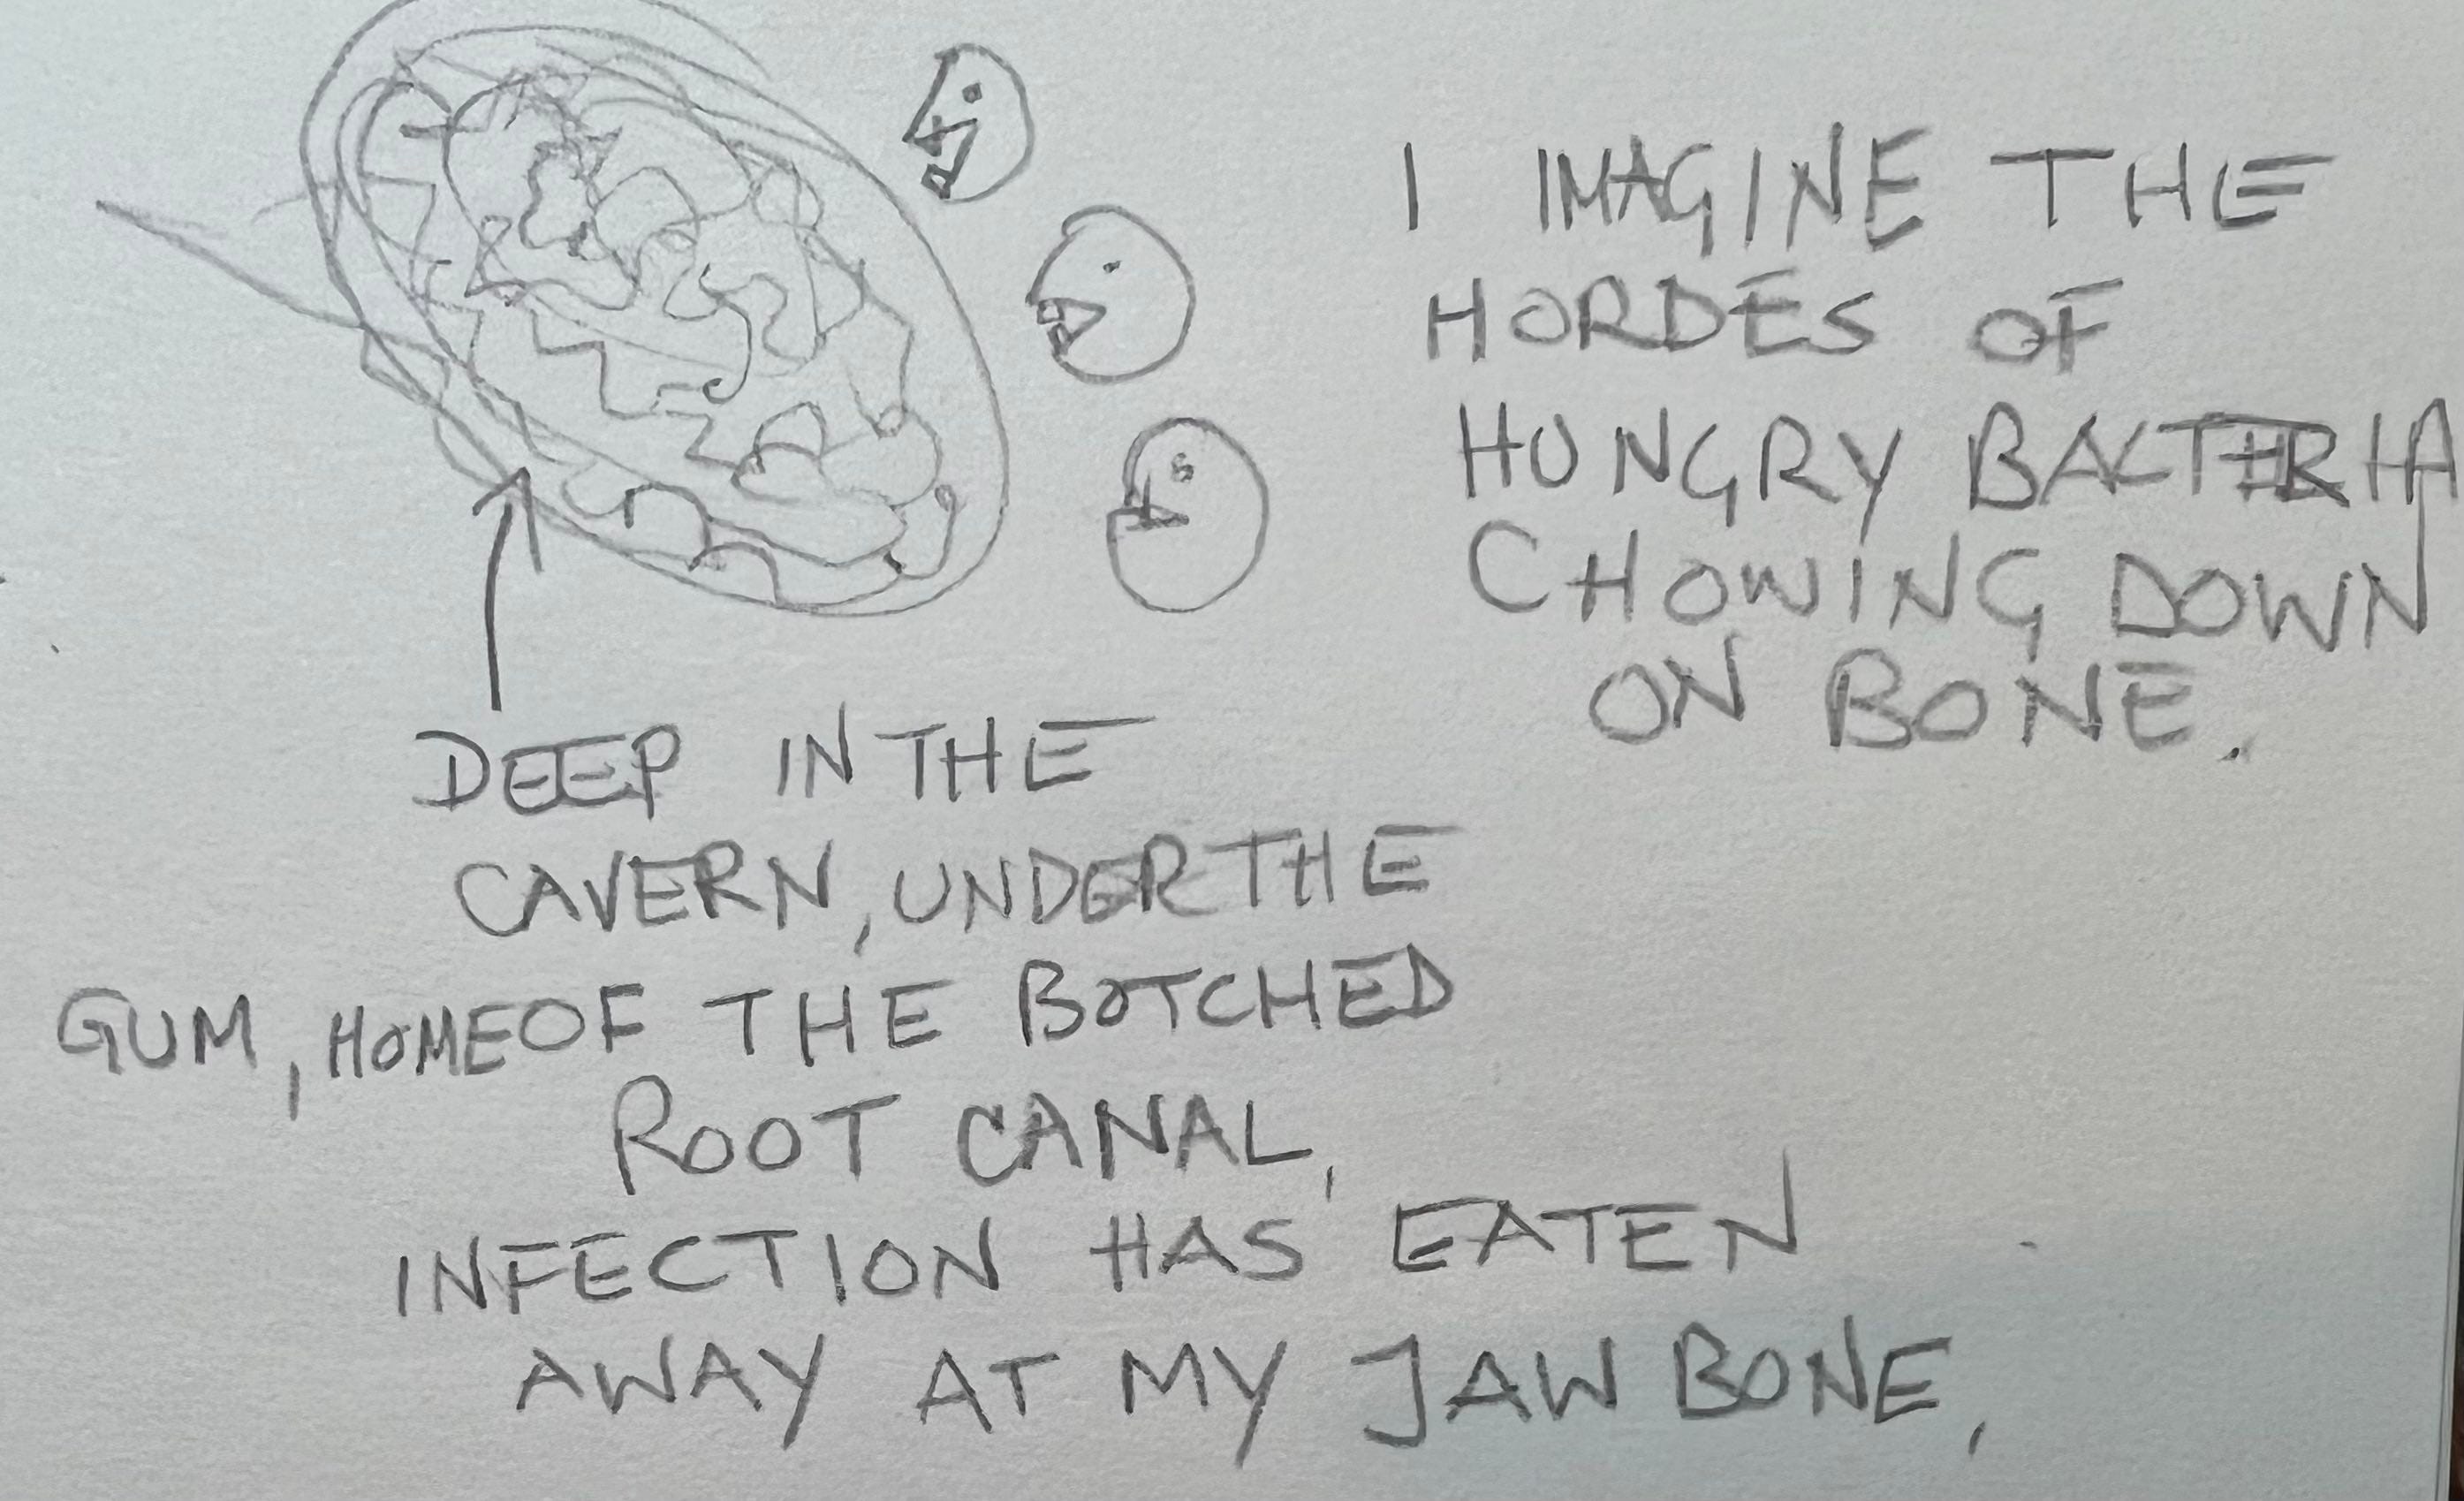 I IMAGINE THE
HORDES OF
HUNGRY BACTERIA
CHOWING DOWN
ON BONE.
DEEP IN THE
CAVERN, UNDER THE
GUM, HOME OF THE BOTCHED
ROOT CANAL,
INFECTION HAS EATEN
AWAY AT MY JAW BONE,